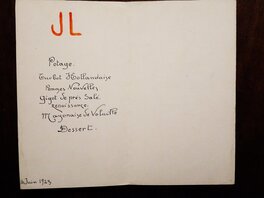 JL
Potage.
Turbot Hollandaise
Pommes Nouvelles
Gigot de pres Salé.
Renaissance.
Mayonaise de Volaille
Dessert.
Juin 1923